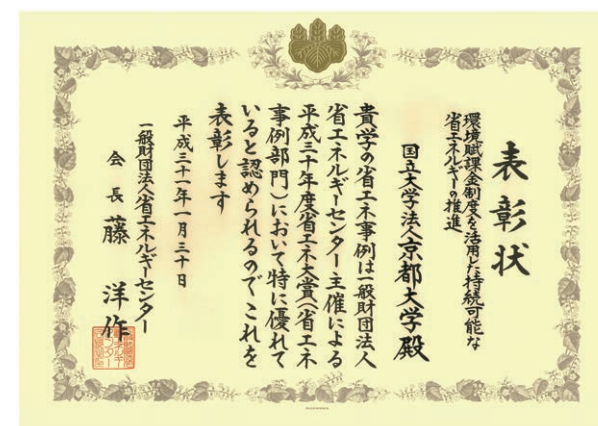 表彰状
環境賦課金制度を活用した持続可能な
省エネルギーの推進
国立大学法人京都大学殿
貴学の省エネ事例は一般財団法人
省エネルギーセンター主催による
平成三十年度省エネ大賞(省エネ
事例部門)において特に優れて
いると認められるのでこれを
表彰します
平成三十一年一月三十日
一般財団法人省エネルギーセンター
会長 藤 洋作